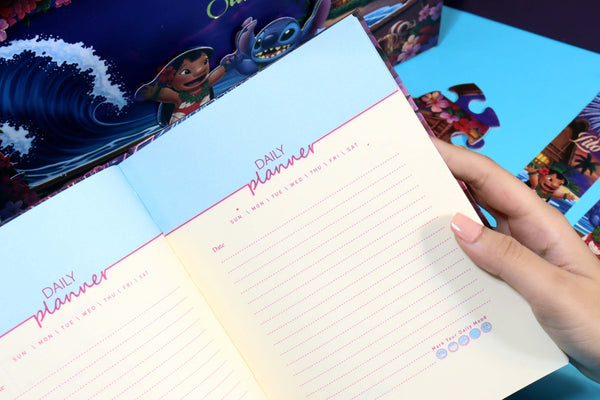 DAILY
planner
SUN \ MON \ TUE \ WED \ THU \ FRI \ SAT
DAILY
planner
SUN \ MON \ TUE \ WED \ THU \ FRI \ SAT
Date
Mark Your Daily Mood